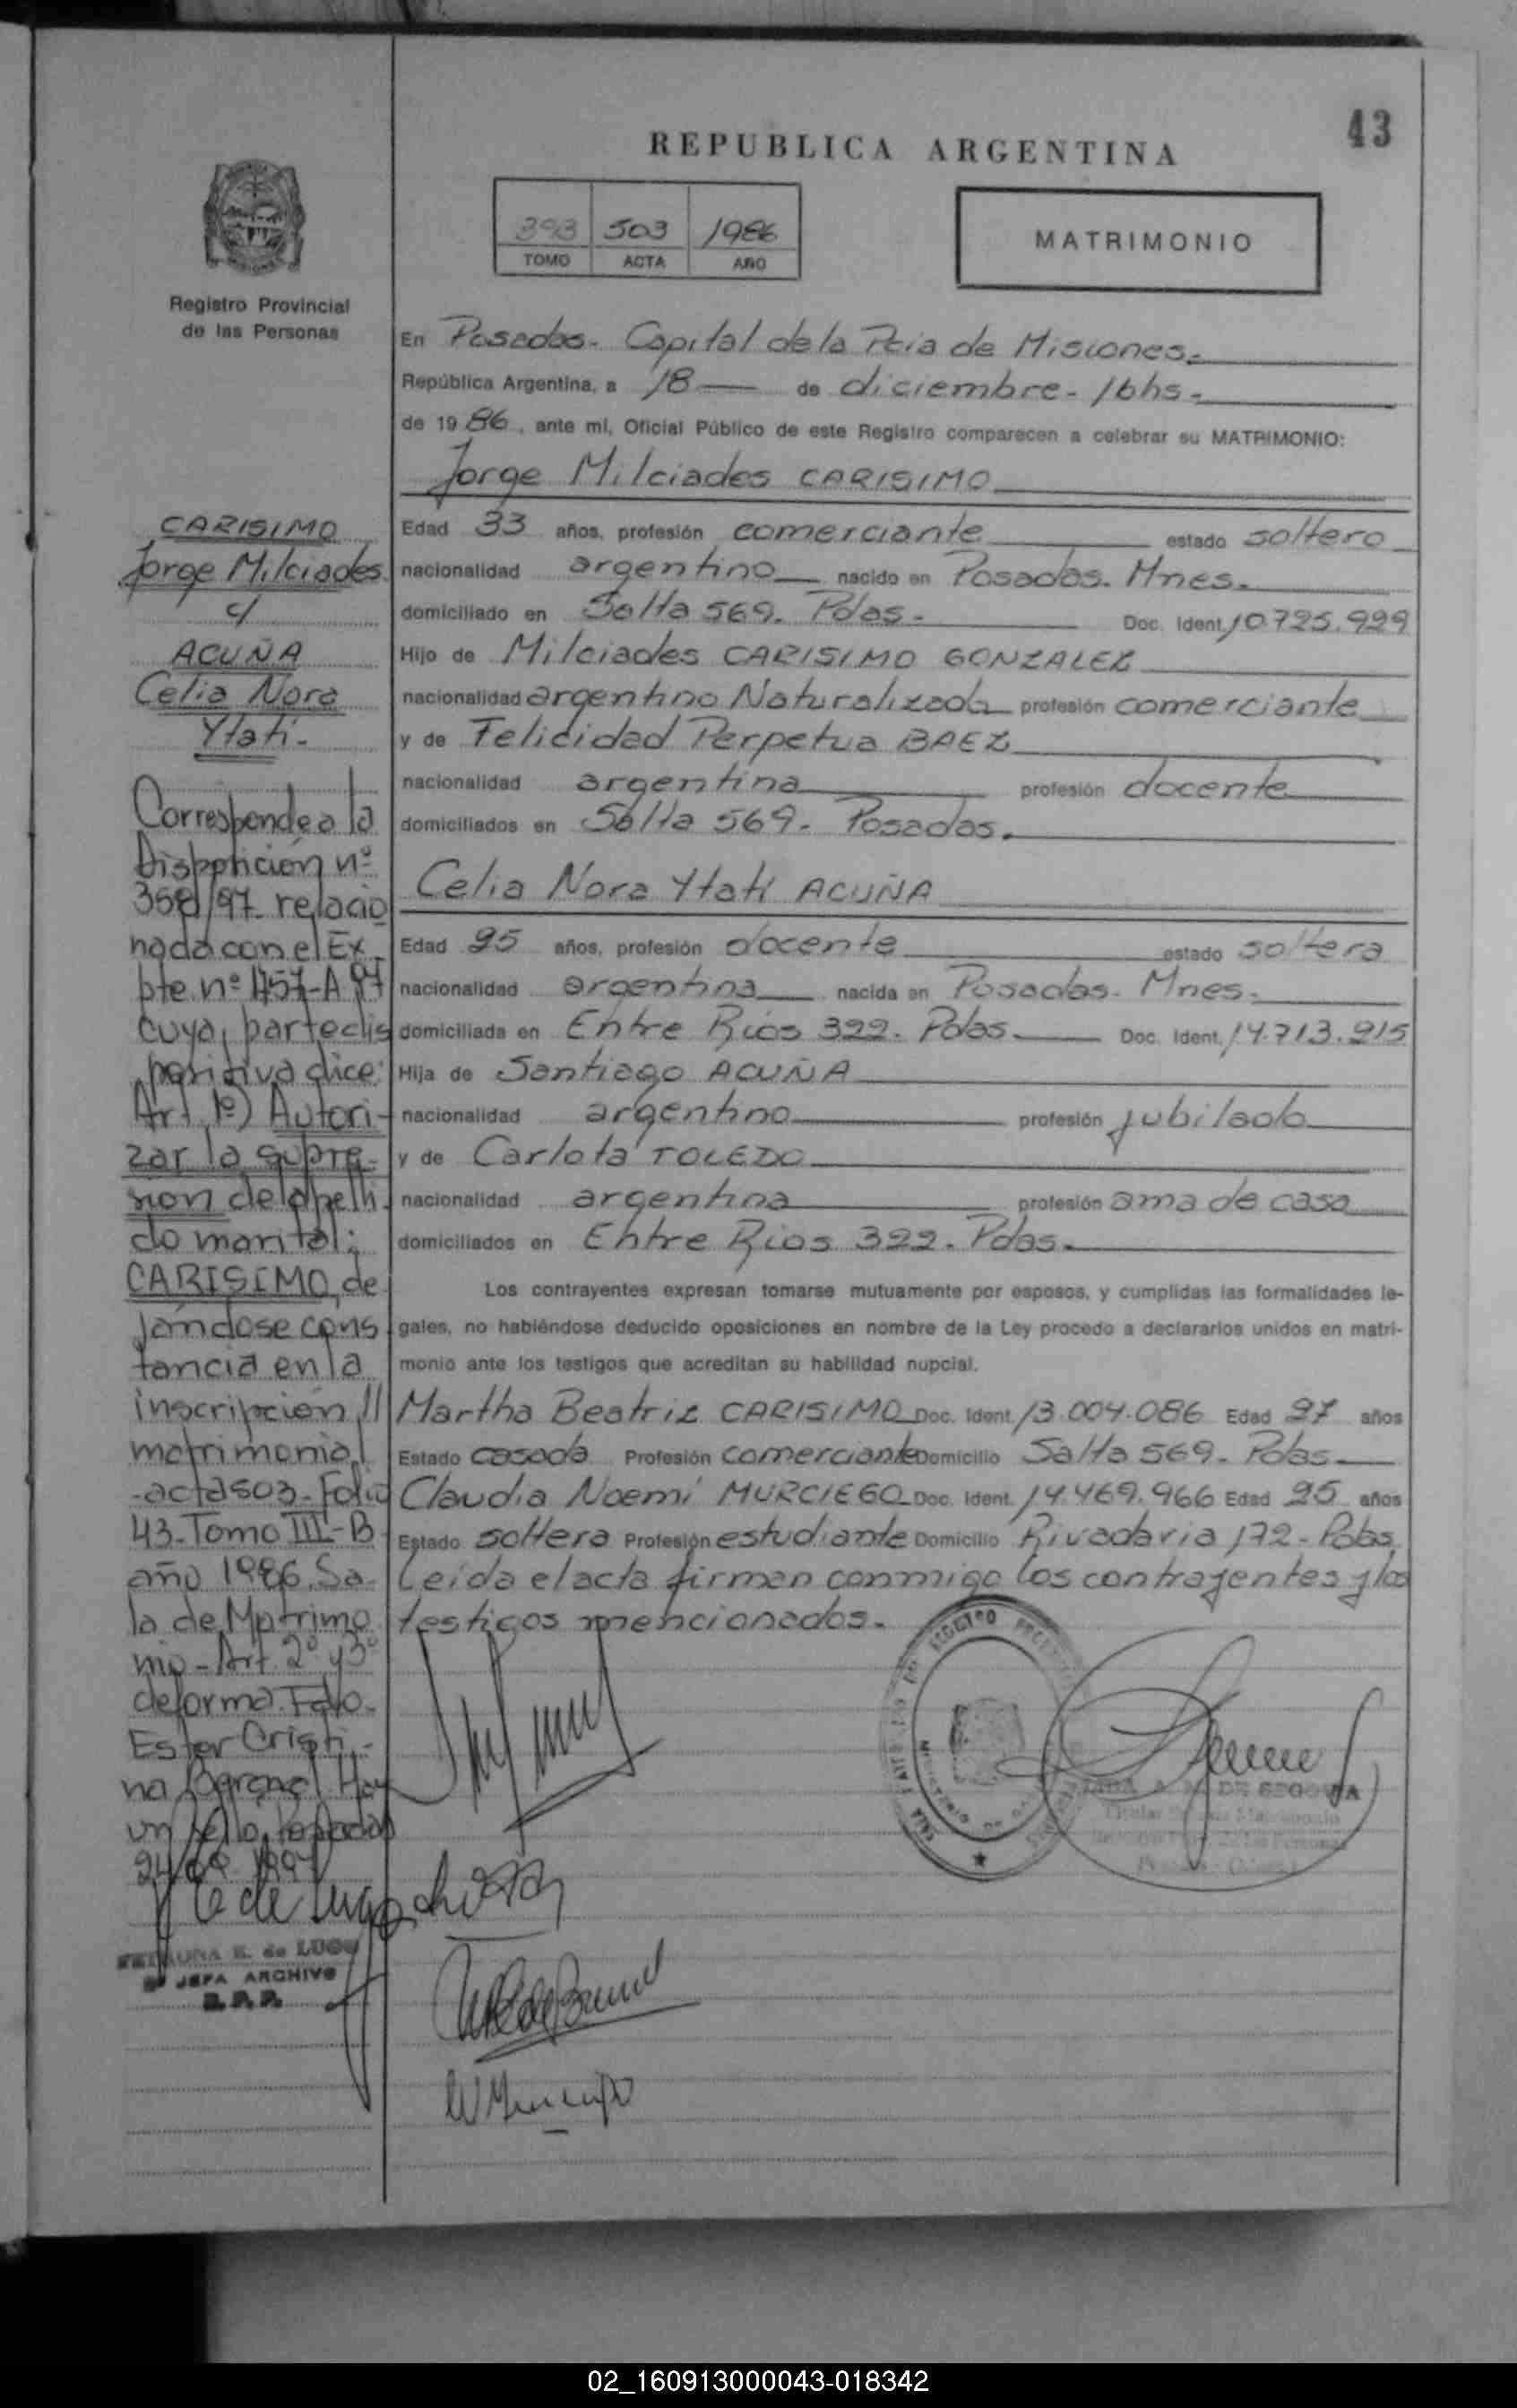 43
REPUBLICA ARGENTINA
393 503 1986
TOMO ACTA AÑO
MATRIMONIO
Registro Provincial
de las Personas
CARISIMO
Jorge Milciades
c/
ACUÑA
Celia Nora
Ytati-
Corresponde a la
Disposición nº
368/97 relacio
nada con el Ex
pte. nº 1457-A 97
cuya parte dis
positiva dice:
Art. 1º) Autori-
zar la supre-
sion del apelli
do marital:
CARISIMO, de
jandose cons
tancia en la
inscripción //
matrimonial
-acta 503- Folio
43-Tomo III-B
año 1986. Sa-
la de Matrimo
nio- Art. 2º y 3º
de forma. Fdo.
Ester Cristi-
na Hay
un sello, Posadas
24 1997
E. de LUGO
JEFA ARCHIVO
En Posadas- Capital de la Pcia de Misiones.-
República Argentina, a 18 de diciembre- 16hs.-
de 1986, ante mí, Oficial Público de este Registro comparecen a celebrar su MATRIMONIO:
Jorge Milciades CARISIMO
Edad 33 años, profesión comerciante estado soltero
nacionalidad argentino nacido en Posadas. Mnes.
domiciliado en Salta 569. Pdas.- Doc. Ident. 10.725.929
Hijo de Milciades CARISIMO GONZALEZ
nacionalidad argentino Naturalizado profesión comerciante
y de Felicidad Perpetua BAEZ
nacionalidad argentina profesión docente
domiciliados en Salta 569. Posadas.
Celia Nora Ytatí ACUÑA
Edad 25 años, profesión docente estado soltera
nacionalidad argentina nacida en Posadas. Mnes.
domiciliada en Entre Rios 322. Pdas. Doc. Ident. 14.713.215
Hija de Santiago ACUÑA
nacionalidad argentino profesión jubilado
y de Carlota TOLEDO
nacionalidad argentina profesión ama de casa
domiciliados en Entre Rios 322. Pdas.
Los contrayentes expresan tomarse mutuamente por esposos, y cumplidas las formalidades le-
gales, no habiéndose deducido oposiciones en nombre de la Ley procedo a declararlos unidos en matri-
monio ante los testigos que acreditan su habilidad nupcial.
Martha Beatriz CARISIMO Doc. Ident. 13.004.086 Edad 27 años
Estado casada Profesión comerciante Domicilio Salta 569. Pdas.
Claudia Noemí MURCIEGO Doc. Ident. 14.469.966 Edad 25 años
Estado soltera Profesión estudiante Domicilio Rivadavia 172- Pdas.
Leída el acta firman conmigo los contrayentes y los
testigos mencionados.-
DE SEGOVIA
02_160913000043-018342